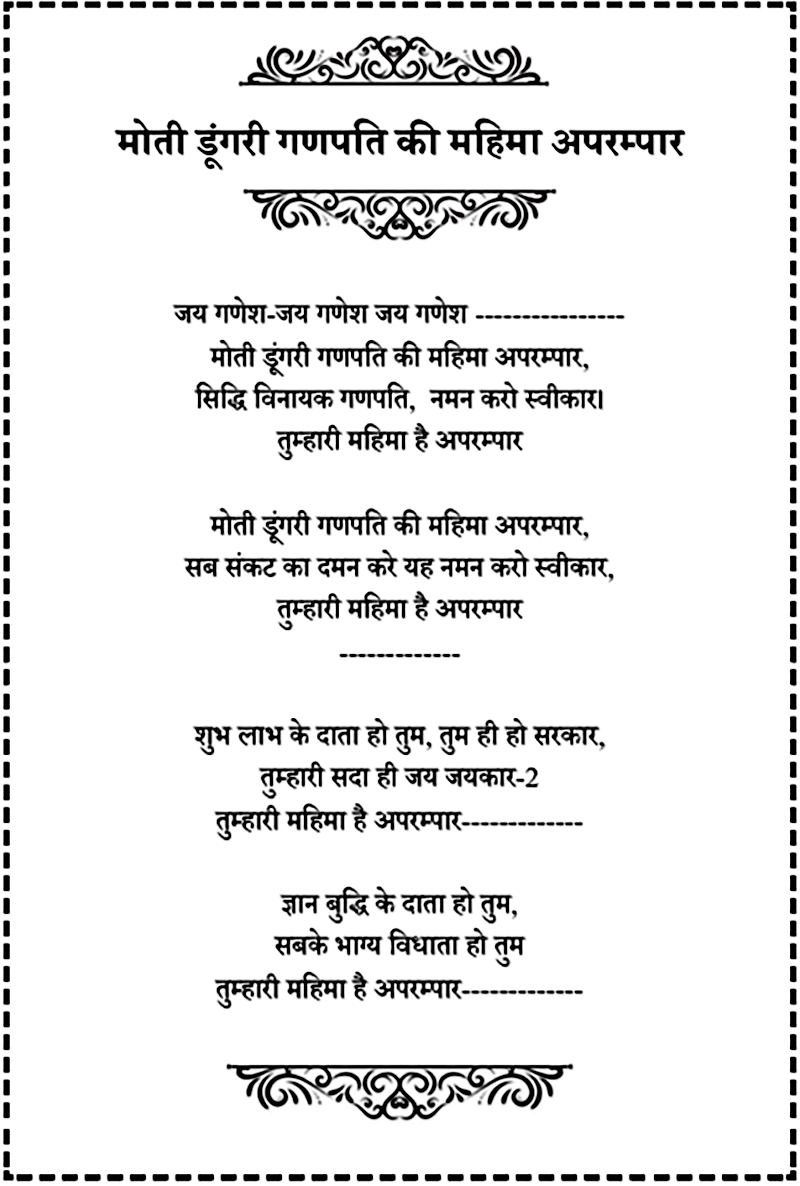 मोती डूंगरी गणपति की महिमा अपरम्पार
जय गणेश-जय गणेश जय गणेश ----------------
मोती डूंगरी गणपति की महिमा अपरम्पार,
सिद्धि विनायक गणपति,  नमन करो स्वीकार।
तुम्हारी महिमा है अपरम्पार
मोती डूंगरी गणपति की महिमा अपरम्पार,
सब संकट का दमन करे यह नमन करो स्वीकार,
तुम्हारी महिमा है अपरम्पार
-------------
शुभ लाभ के दाता हो तुम, तुम ही हो सरकार,
तुम्हारी सदा ही जय जयकार-2
तुम्हारी महिमा है अपरम्पार-------------
ज्ञान बुद्धि के दाता हो तुम,
सबके भाग्य विधाता हो तुम
तुम्हारी महिमा है अपरम्पार-------------